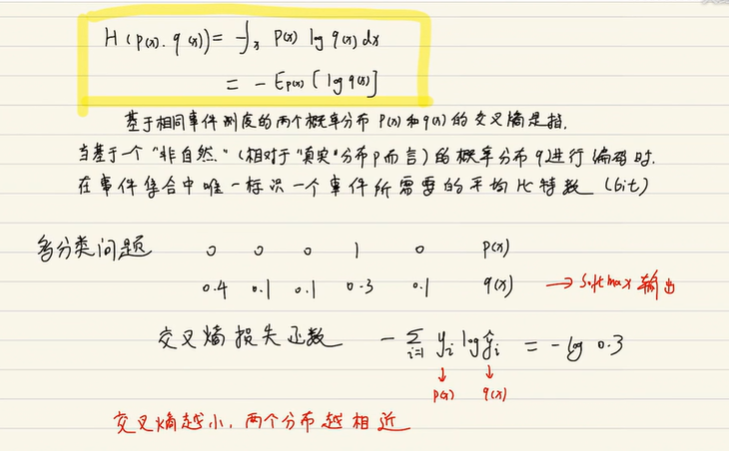 H(p(x). q(x)) = -∫x p(x) log q(x) dx
= - Ep(x) [log q(x)]
基于相同事件测度的两个概率分布 p(x) 和 q(x) 的交叉熵是指.
当基于一个"非自然."(相对于"真实"分布 p 而言) 的概率分布 q 进行编码时.
在事件集合中唯一标识一个事件所需要的平均比特数 (bit)
多分类问题 0 0 0 1 0 p(x)
0.4 0.1 0.1 0.3 0.1 q(x) → Softmax 输出
交叉熵损失函数 - Σ i=1 yi log ŷi = - log 0.3
↓ ↓
p(x) q(x)
交叉熵越小, 两个分布越相近